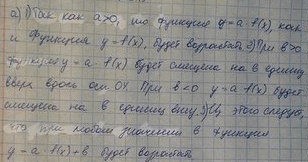 а) 1) Так как a>0, то функция y=a·f(x), как
и функция y=f(x), будет возрастать 2) При b>0
функция y=a·f(x) будет смещена на b единиц
вверх вдоль оси OY. При b<0 y=a·f(x) будет
смещена на b единиц вниз 3) Из этого следует,
что при любом значении b функция
y=a·f(x)+b будет возрастать